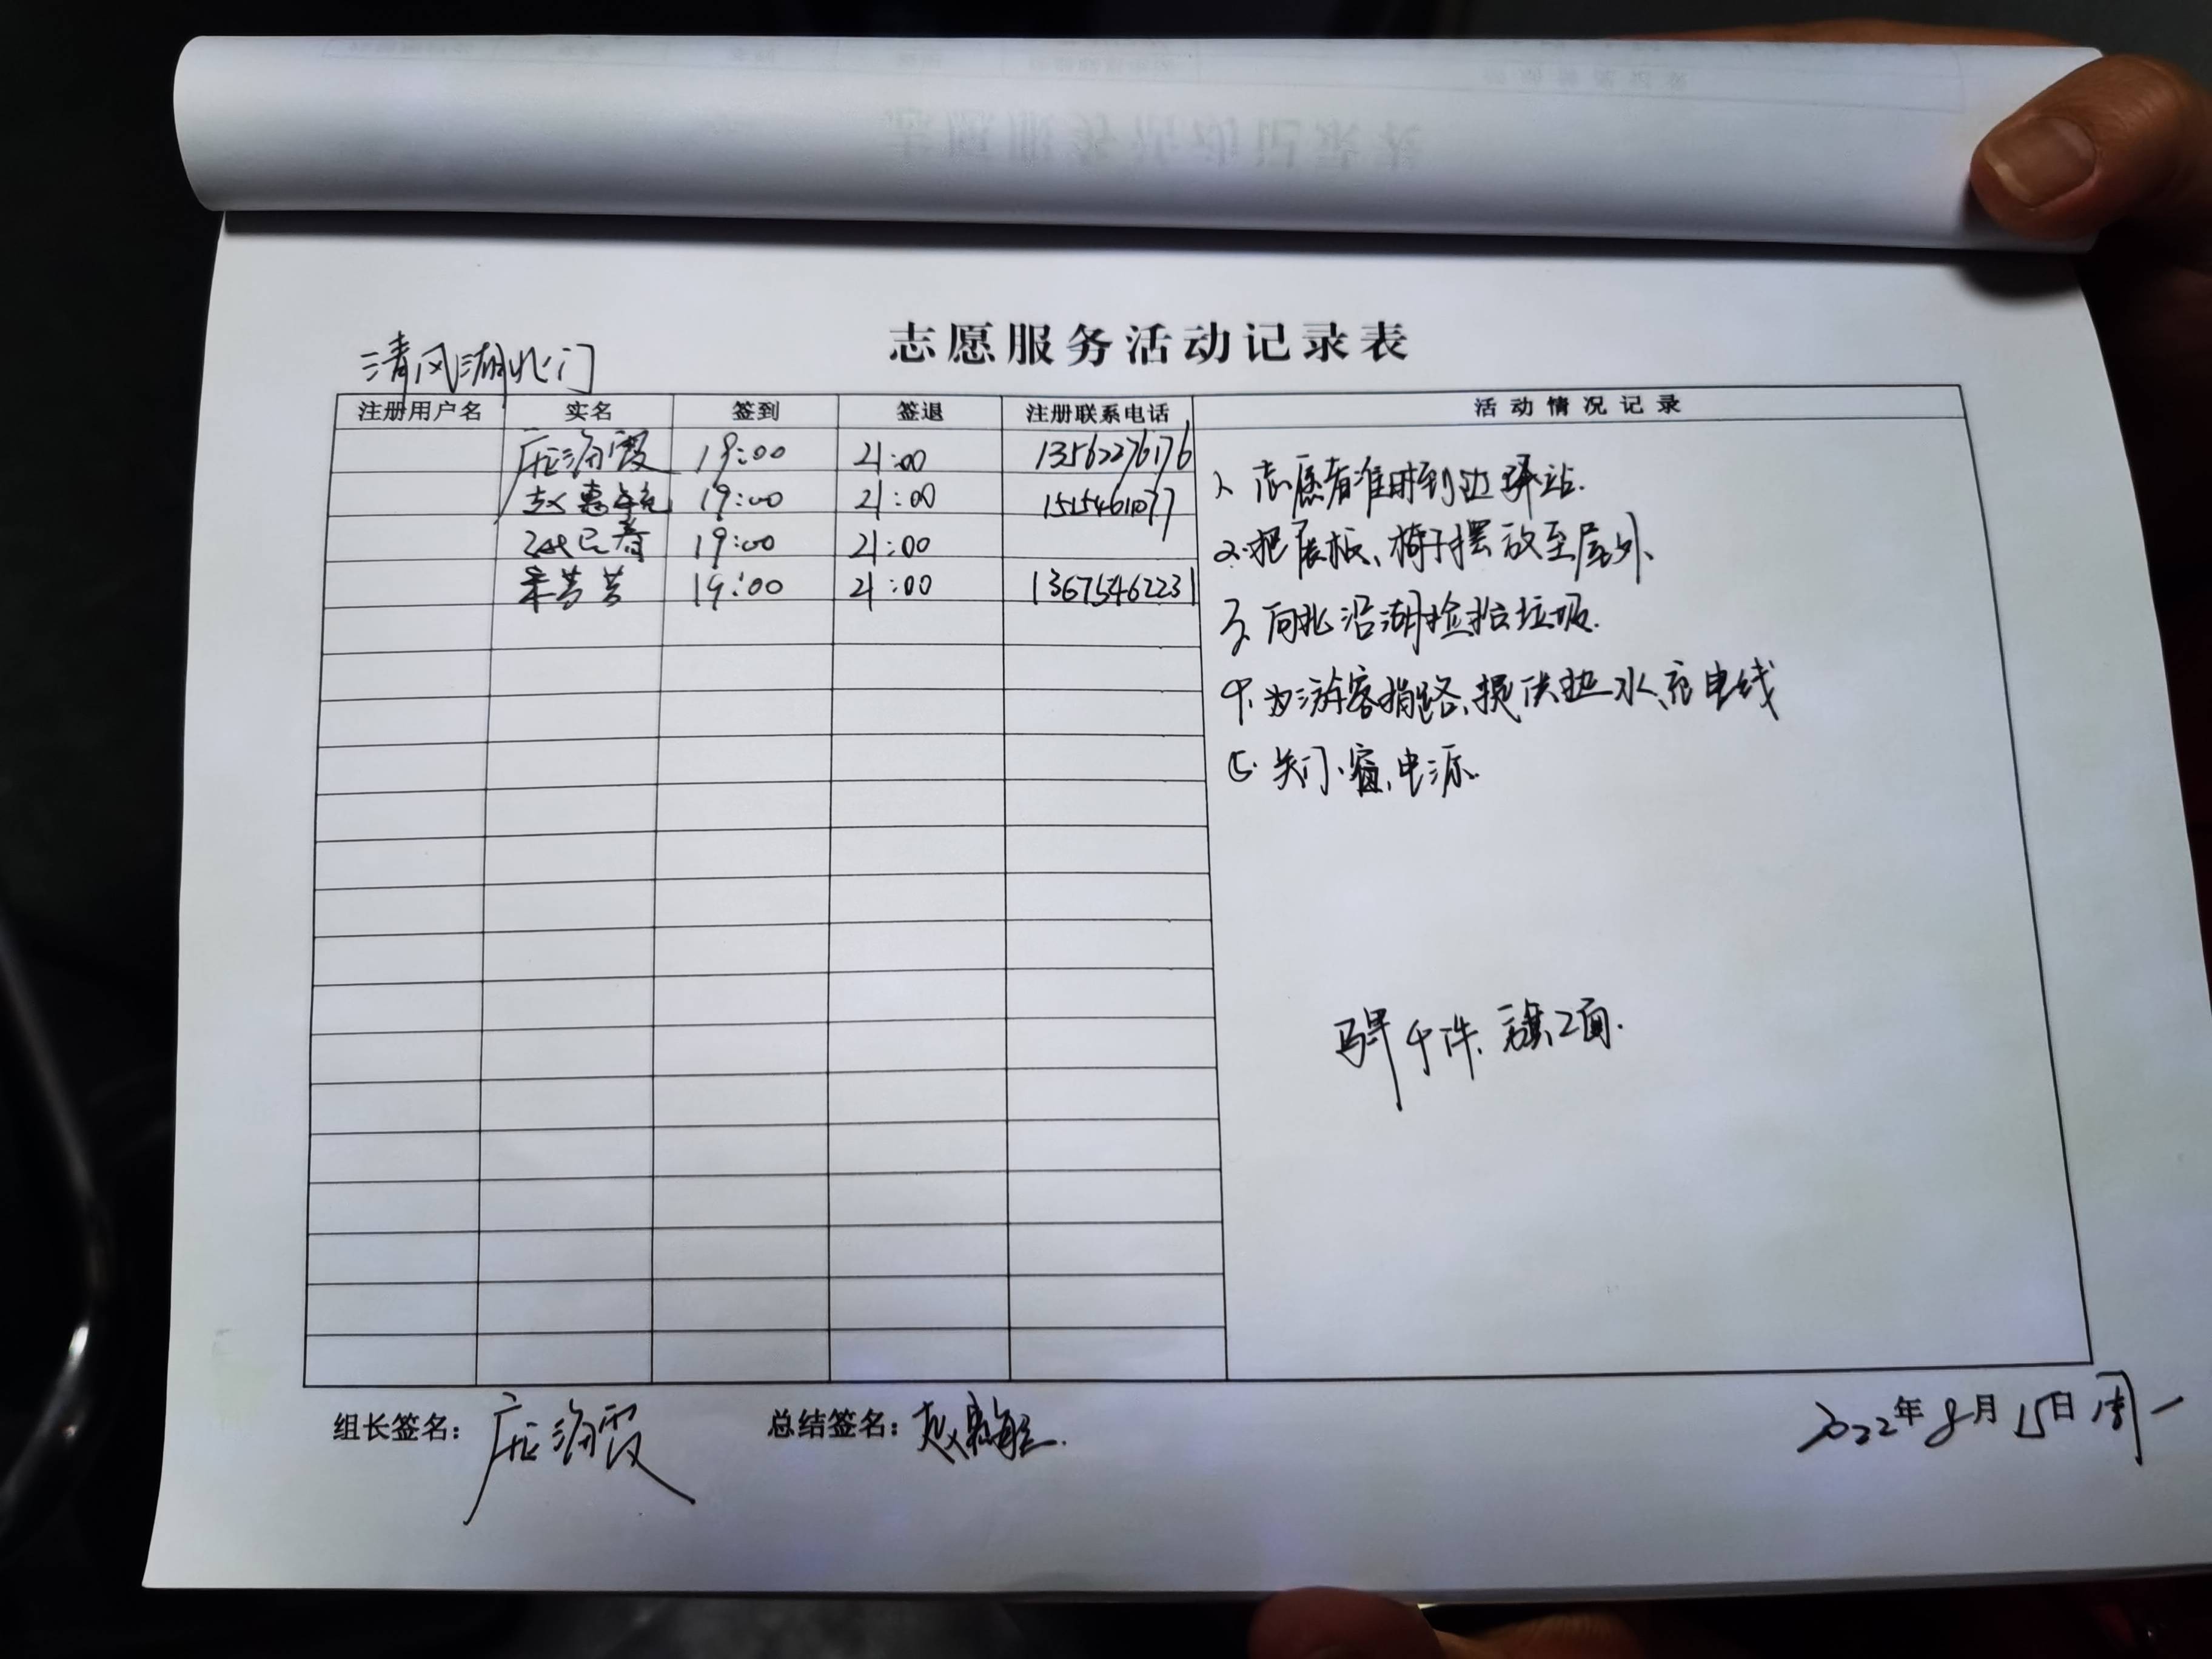 志愿服务活动记录表
清风湖北门
注册用户名 实名 签到 签退 注册联系电话 活动情况记录
19:00 21:00 13562276176
赵 19:00 21:00 15154611077
19:00 21:00
19:00 21:00 13675462231
1、志愿者准时到边驿站.
2.把展板、椅子摆放至屋外、
3.向北沿湖捡拾垃圾.
4.为游客指路、提供热水、充电线
5.关门、窗、电源.
马甲4件、旗2面.
组长签名： 总结签名： 2022年8月15日周一